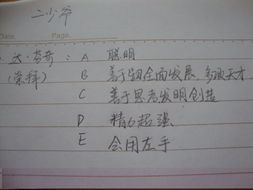 二少爷
Date. Page.
达·芬奇: A 聪明
(崇拜) B 善于全面发展,多项天才
C 善于思考发明创造
D 精力超强
E 会用左手